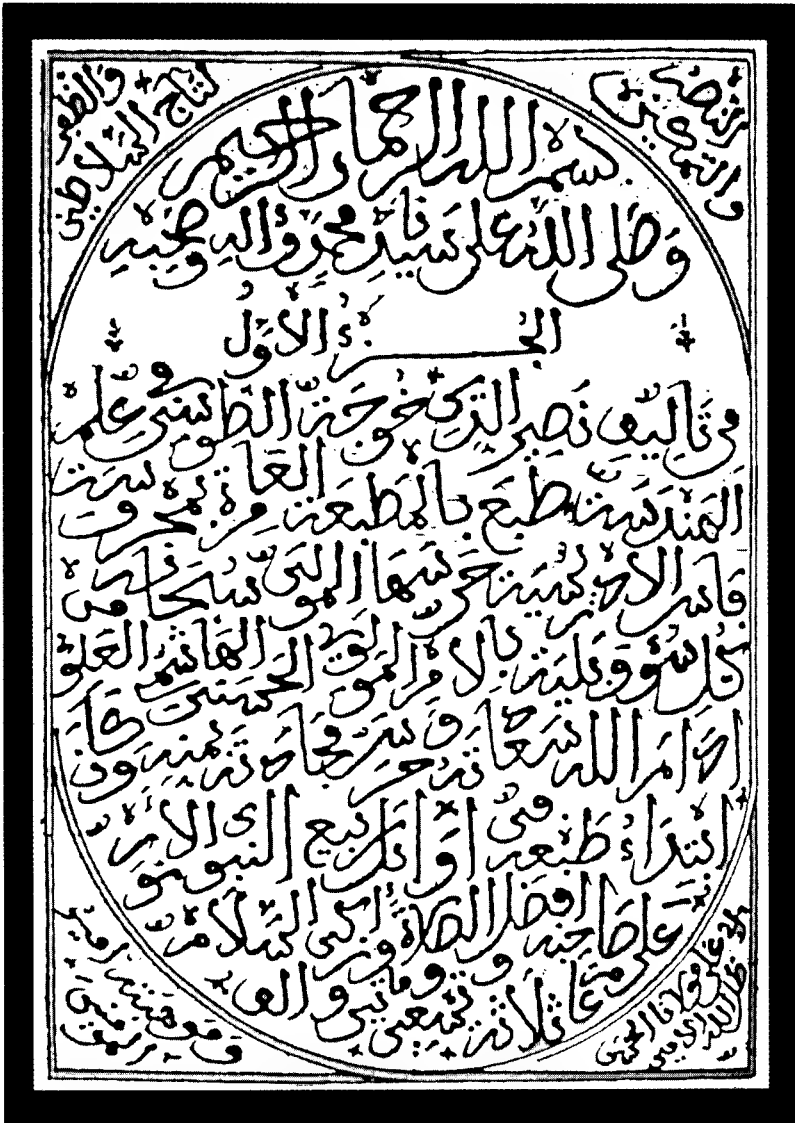 النصر
والتمكين
والظفر
لتاج السلاطين
بسم الله الرحمان الرحيم
وصلى الله على سيدنا محمد وءاله وصحبه
الجزء الأول
في تأليف نصير الدين خوجة الطوسي في علم
الهندسة طبع بالمطبعة العامرة بمحروسة
فاس الإدريسية حرسها المولى سبحانه من
كل سوء وبلية بالامر المولوي الحسني الهاشمي العلوي
ادام الله سعادته وحرس مجادته بمنه وكان
ابتداء طبعه في أوائل ربيع النبوي الانور
على صاحبه افضل الصلاة وأزكى السلام
من عام ثلاثة وتسعين ومائتين والف
مولانا الحسن
امير
المومنين